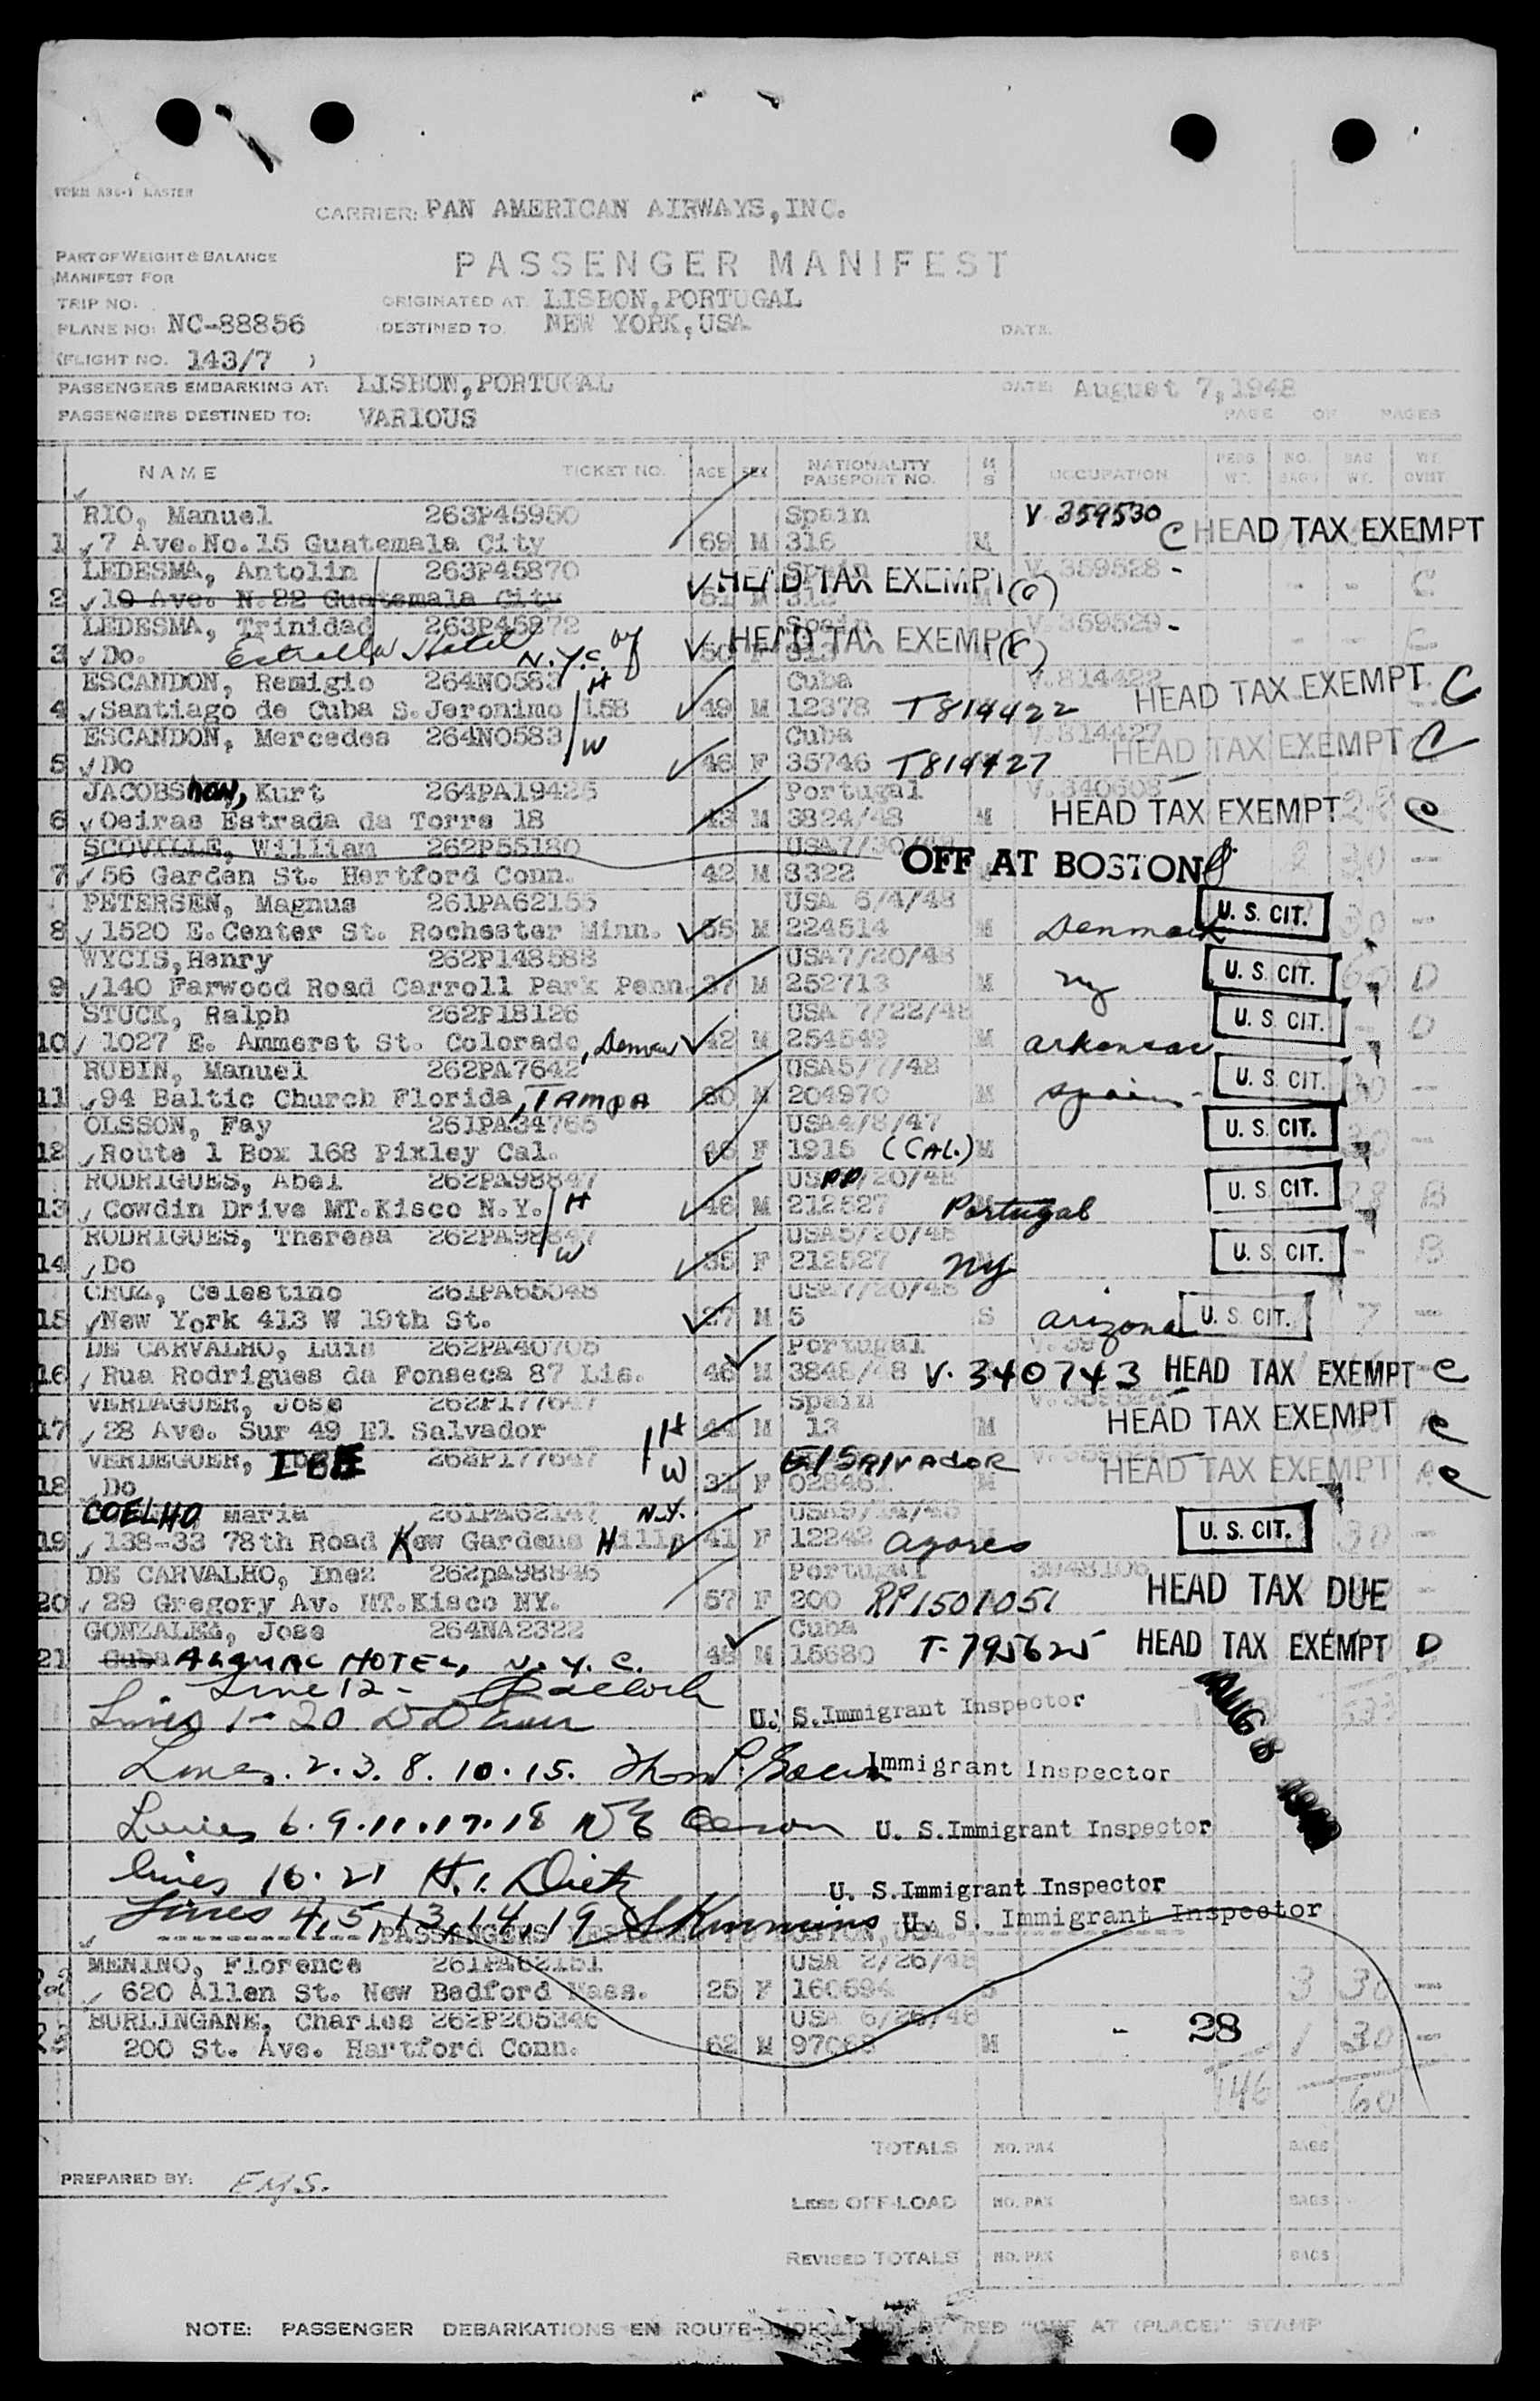 FORM 836-1 EASTER
CARRIER: PAN AMERICAN AIRWAYS, INC.
PART OF WEIGHT & BALANCE
MANIFEST FOR
PASSENGER MANIFEST
TRIP NO. ORIGINATED AT LISBON, PORTUGAL
PLANE NO: NC-88856 DESTINED TO NEW YORK, USA DATE.
(FLIGHT NO. 143/7 )
PASSENGERS EMBARKING AT: LISBON, PORTUGAL DATE: August 7, 1948
PASSENGERS DESTINED TO: VARIOUS PAGE OF PAGES
NAME TICKET NO. AGE SEX NATIONALITY PASSPORT NO. M S OCCUPATION PERS. WT. NO. BAGS BAG WT. WT OVWT
RIO, Manuel 263P45950 Spain V 359530
1 7 Ave. No. 15 Guatemala City 69 M 316 M C HEAD TAX EXEMPT
LEDESMA, Antolin 263P45870 Spain V. 359528 -
2 10 Ave. N. 22 Guatemala City M HEAD TAX EXEMPT (C) - - C
LEDESMA, Trinidad 263P45872 Spain V. 359529 -
3 Do. Estrella Hotel N.Y.C. 50 F 313 HEAD TAX EXEMPT (C) - - C
ESCANDON, Remigio 264N0583 H Cuba V. 814422
4 Santiago de Cuba S. Jeronimo 158 49 M 12378 T814422 HEAD TAX EXEMPT C
ESCANDON, Mercedes 264N0583 W Cuba V. 814427
5 Do 46 F 35746 T814427 HEAD TAX EXEMPT C
JACOBSHON, Kurt 264PA19425 Portugal V. 340608
6 Oeiras Estrada da Torre 18 43 M 3824/48 M HEAD TAX EXEMPT 28 C
SCOVILLE, William 262P55180 USA 7/30/48
7 56 Garden St. Hertford Conn. 42 M 3322 OFF AT BOSTON 2 30 -
PETERSEN, Magnus 261PA62155 USA 6/4/48
8 1520 E. Center St. Rochester Minn. 55 M 224514 M Denmark U. S. CIT. 30 -
WYCIS, Henry 262P148588 USA 7/20/48
9 140 Farwood Road Carroll Park Penn 37 M 252713 M NY U. S. CIT. 60 D
STUCK, Ralph 262P18126 USA 7/22/48
10 1027 E. Ammerst St. Colorado, Denver 42 M 254549 M Arkansas U. S. CIT. - D
RUBIN, Manuel 262PA7642 USA 5/7/48
11 94 Baltic Church Florida, TAMPA 60 M 204970 M Spain - U. S. CIT. 30 -
OLSSON, Fay 261PA34765 USA 4/8/47
12 Route 1 Box 168 Pixley Cal. 46 F 1915 (CAL.) M U. S. CIT. 30 -
RODRIGUES, Abel 262PA98847 /20/48
13 Cowdin Drive MT. Kisco N.Y. H 46 M 212527 Portugal U. S. CIT. 28 B
RODRIGUES, Theresa 262PA98847 USA 5/20/48
14 Do W 35 F 212527 NY U. S. CIT. - B
CRUZ, Celestino 261PA65048 USA 7/20/48
15 New York 413 W 19th St. 27 M 5 S Arizona U. S. CIT. 7 -
DE CARVALHO, Luis 262PA40705 Portugal
16 Rua Rodrigues da Fonseca 87 Lis. 46 M 3848/48 V. 340743 HEAD TAX EXEMPT C
VERDAGUER, Jose 262P177647 Spain
17 28 Ave. Sur 49 El Salvador H 44 M 13 M HEAD TAX EXEMPT A C
VERDEGUER, 262P177647 El SALVADOR
18 Do W 31 F M HEAD TAX EXEMPT A C
COELHO Maria 261PA62147 N.Y. USA
19 138-33 78th Road Kew Gardens Hills 41 F 12242 Azores U. S. CIT. 30 -
DE CARVALHO, Inez 262pA98846 Portugal
20 29 Gregory Av. MT. Kisco NY. 57 F 200 RP1501051 HEAD TAX DUE -
GONZALEZ, Jose 264NA2322 Cuba
21 Cuba HOTEL, N.Y.C. 48 M 15680 T-795625 HEAD TAX EXEMPT D
Line 12 -
Lines 1-20 U. S. Immigrant Inspector AUG 8 1948
Lines. 2. 3. 8. 10. 15. Immigrant Inspector
Lines 6. 9. 11. 17. 18 U. S. Immigrant Inspector
lines 16. 21 H. I. Dietz U. S. Immigrant Inspector
Lines 4, 5, 13, 14, 19 S Kimmins U. S. Immigrant Inspector
PASSENGERS DESTINED TO BOSTON, USA.
MENINO, Florence 261PA62151 USA 2/26/48
22 620 Allen St. New Bedford Mass. 25 F 160594 S 3 30 -
BURLINGANE, Charles 262P205346 USA 6/25/48
23 200 St. Ave. Hartford Conn. 62 M 97068 M - 28 1 30 -
146 60
TOTALS NO. PAX BAGS
PREPARED BY: EMS.
LESS OFF-LOAD NO. PAX BAGS
REVISED TOTALS NO. PAX BAGS
NOTE: PASSENGER DEBARKATIONS EN ROUTE INDICATED BY RED "OFF AT (PLACE)" STAMP